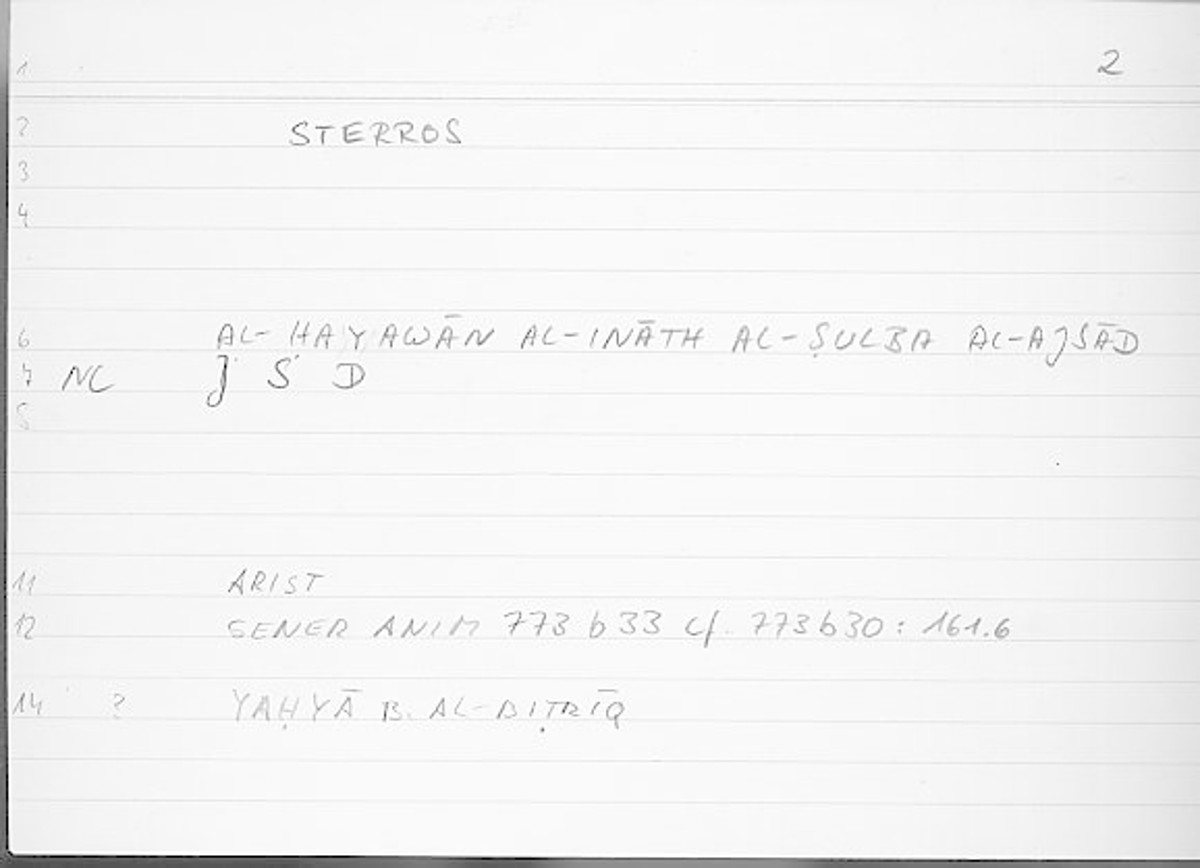 1 2
2 STERROS
3
4
6 AL-HAYAWĀN AL-INĀTH AL-ṢULBA AL-AJSĀD
7 NC J S D
11 ARIST
12 GENER ANIM 773 b 33 cf. 773b30 : 161.6
14 ? YAḤYĀ B. AL-BIṬRĪQ